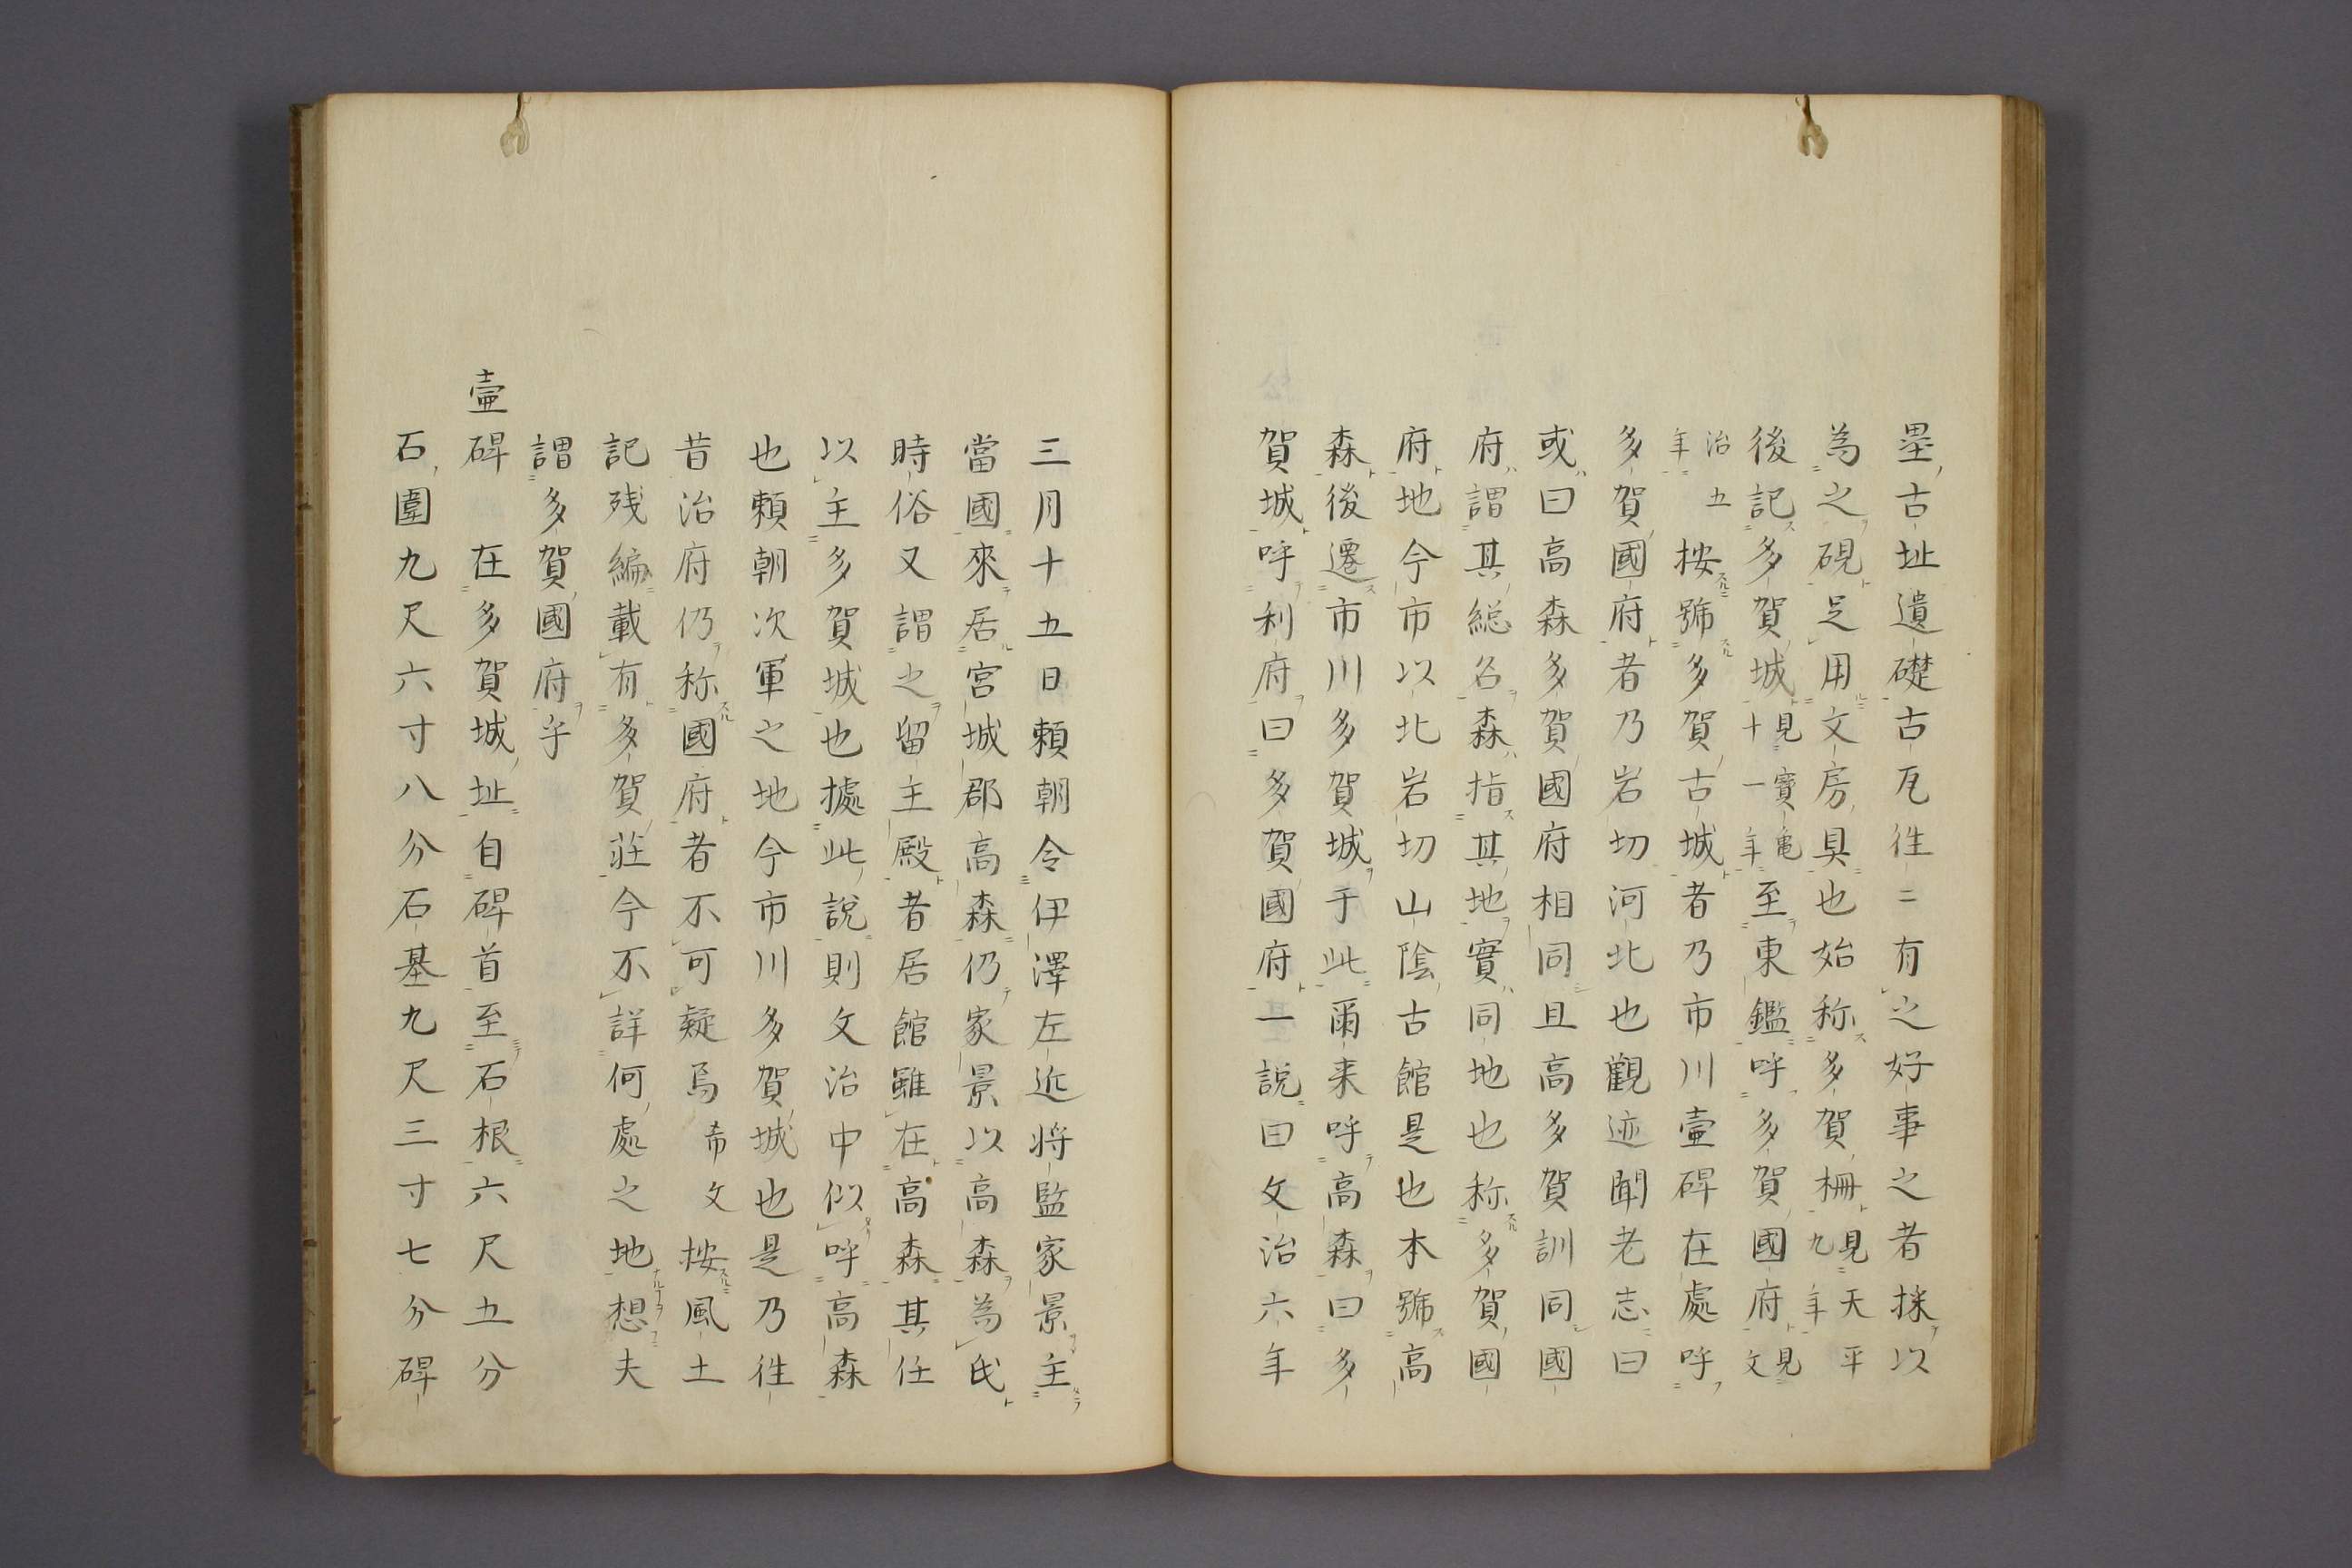 塁古址遺礎古瓦徃〻有之好事之者採以
為之硯足用文房具也始称多賀柵見天平九年
後記多賀城見寶亀十一年至東鑑呼多賀國府見文
治五年按號多賀古城者乃市川壷碑在處呼
多賀國府者乃岩切河北也觀迹聞老志曰
或曰高森多賀國府相同且高多賀訓同國
府謂其総名森指其地實同地也称多賀國
府地今市以北岩切山陰古館是也本號高
森後遷市川多賀城于此爾来呼高森曰多
賀城呼利府曰多賀國府一説曰文治六年
三月十五日頼朝令伊澤左近将監家景主
當國來居宮城郡高森仍家景以高森為氏
時俗又謂之留主殿者居館雖在高森其任
以主多賀城也據此説則文治中似呼高森
也頼朝次軍之地今市川多賀城也是乃徃
昔治府仍称國府者不可疑焉希文按風土
記残編載有多賀莊今不詳何處之地想夫
謂多賀國府乎
壷碑　在多賀城址自碑首至石根六尺五分
石圍九尺六寸八分石基九尺三寸七分碑